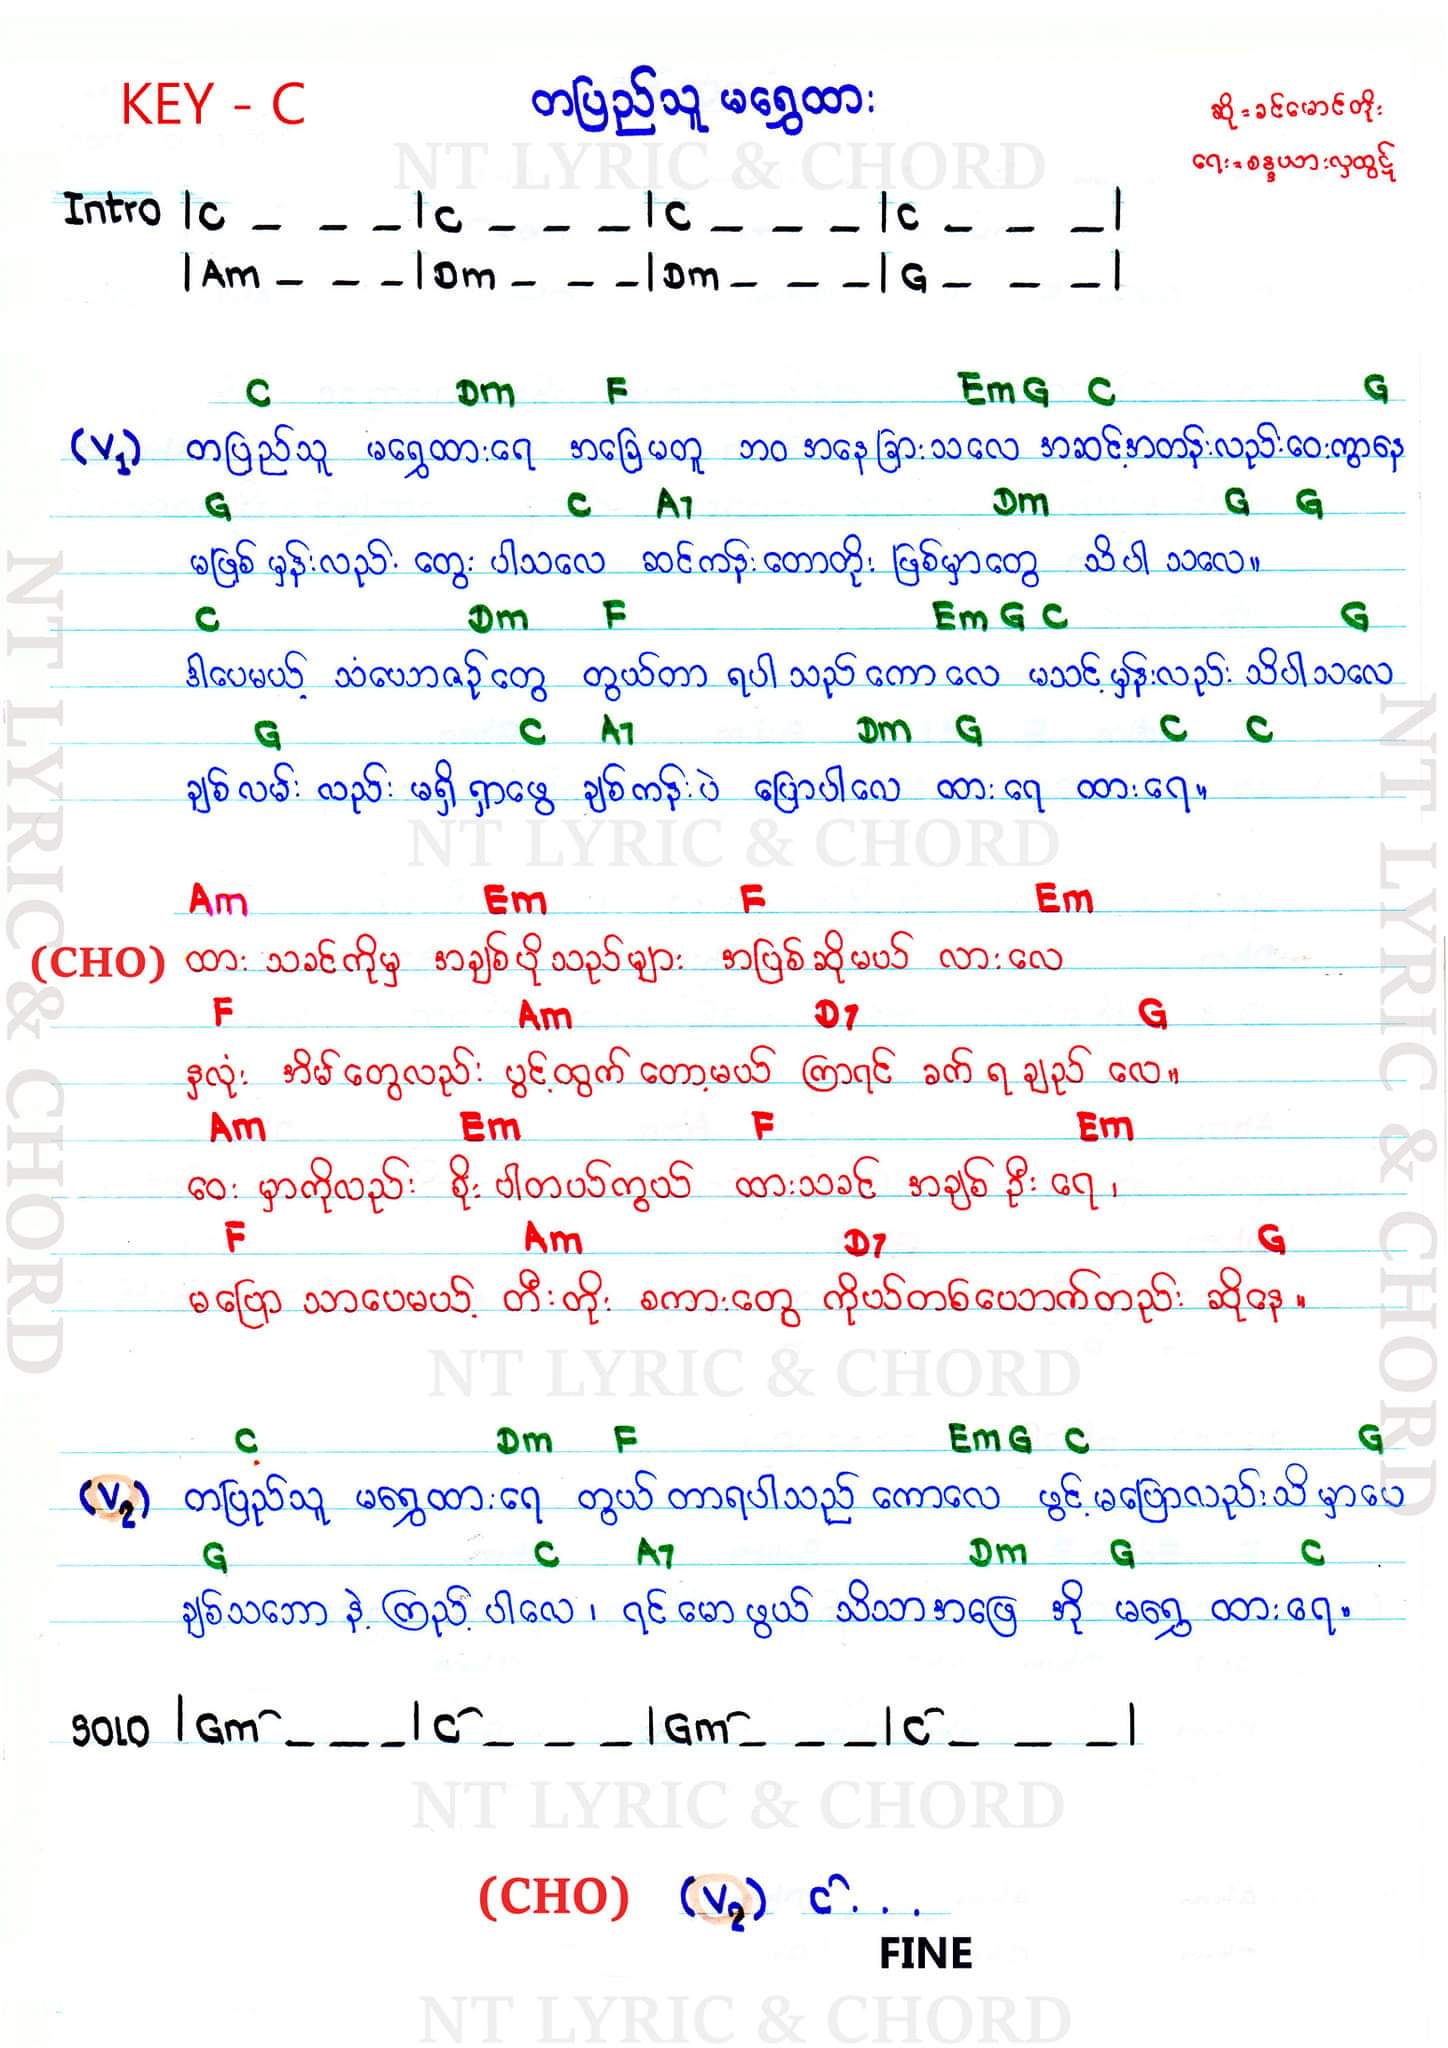 KEY - C
တပြည်သူ မရွှေထား
ဆို = ခင်မောင်တိုး
ရေး = စန္ဒယားလှထွဋ်
NT LYRIC & CHORD
Intro |C _ _ _|C _ _ _|C _ _ _|C _ _ _|
|Am _ _ _|Dm _ _ _|Dm _ _ _|G _ _ _|
C Dm F Em G C G
(V1) တပြည်သူ မရွှေထားရေ အခြေမတူ ဘဝ အနေခြားသလေ အဆင့်အတန်းလည်းဝေးကွာနေ
G C A7 Dm G G
မဖြစ်မှန်းလည်း တွေးပါသလေ ဆင်ကန်းတောတိုး ဖြစ်မှာတွေ သိပါသလေ။
C Dm F Em G C G
ဒါပေမယ့် သံဗေဘဇဉ်တွေ တွယ်တာ ရပါသည်ကောလေ မသင့်မှန်းလည်း သိပါသလေ
G C A7 Dm G C C
ချစ်လမ်းလည်း မရှိရှာဖွေ ချစ်ကန်းပဲ ပြောပါလေ ထားရေ ထားရေ။
NT LYRIC & CHORD
Am Em F Em
(CHO) ထား သခင်ကိုမှ အချစ်ပိုသည်များ အပြစ်ဆိုမယ် လားလေ
F Am D7 G
နှလုံး အိမ်တွေလည်း ပွင့်ထွက်တော့မယ် ကြာရင် ခက်ရချည် လေ။
Am Em F Em
ဝေးမှာကိုလည်း စိုးပါတယ်ကွယ် ထားသခင် အချစ်ဦးရေ၊
F Am D7 G
မပြောသာပေမယ့် တီးတိုး စကားတွေ ကိုယ်တစ်ပေဘက်တည်း ဆိုနေ။
NT LYRIC & CHORD
C Dm F Em G C G
(V2) တပြည်သူ မရွှေထားရေ တွယ်တာရပါသည်ကောလေ ဖွင့်မပြောလည်းသိမှာပေ
G C A7 Dm G C
ချစ်သဘောနဲ့ကြည့်ပါလေ၊ ရင်မောဖွယ် သိသာအဖြေ အို မရွှေထားရေ။
SOLO |Gm _ _ _|C _ _ _|Gm _ _ _|C _ _ _|
NT LYRIC & CHORD
(CHO) (V2) C . . .
FINE
NT LYRIC & CHORD
NT LYRIC & CHORD
NT LYRIC & CHORD